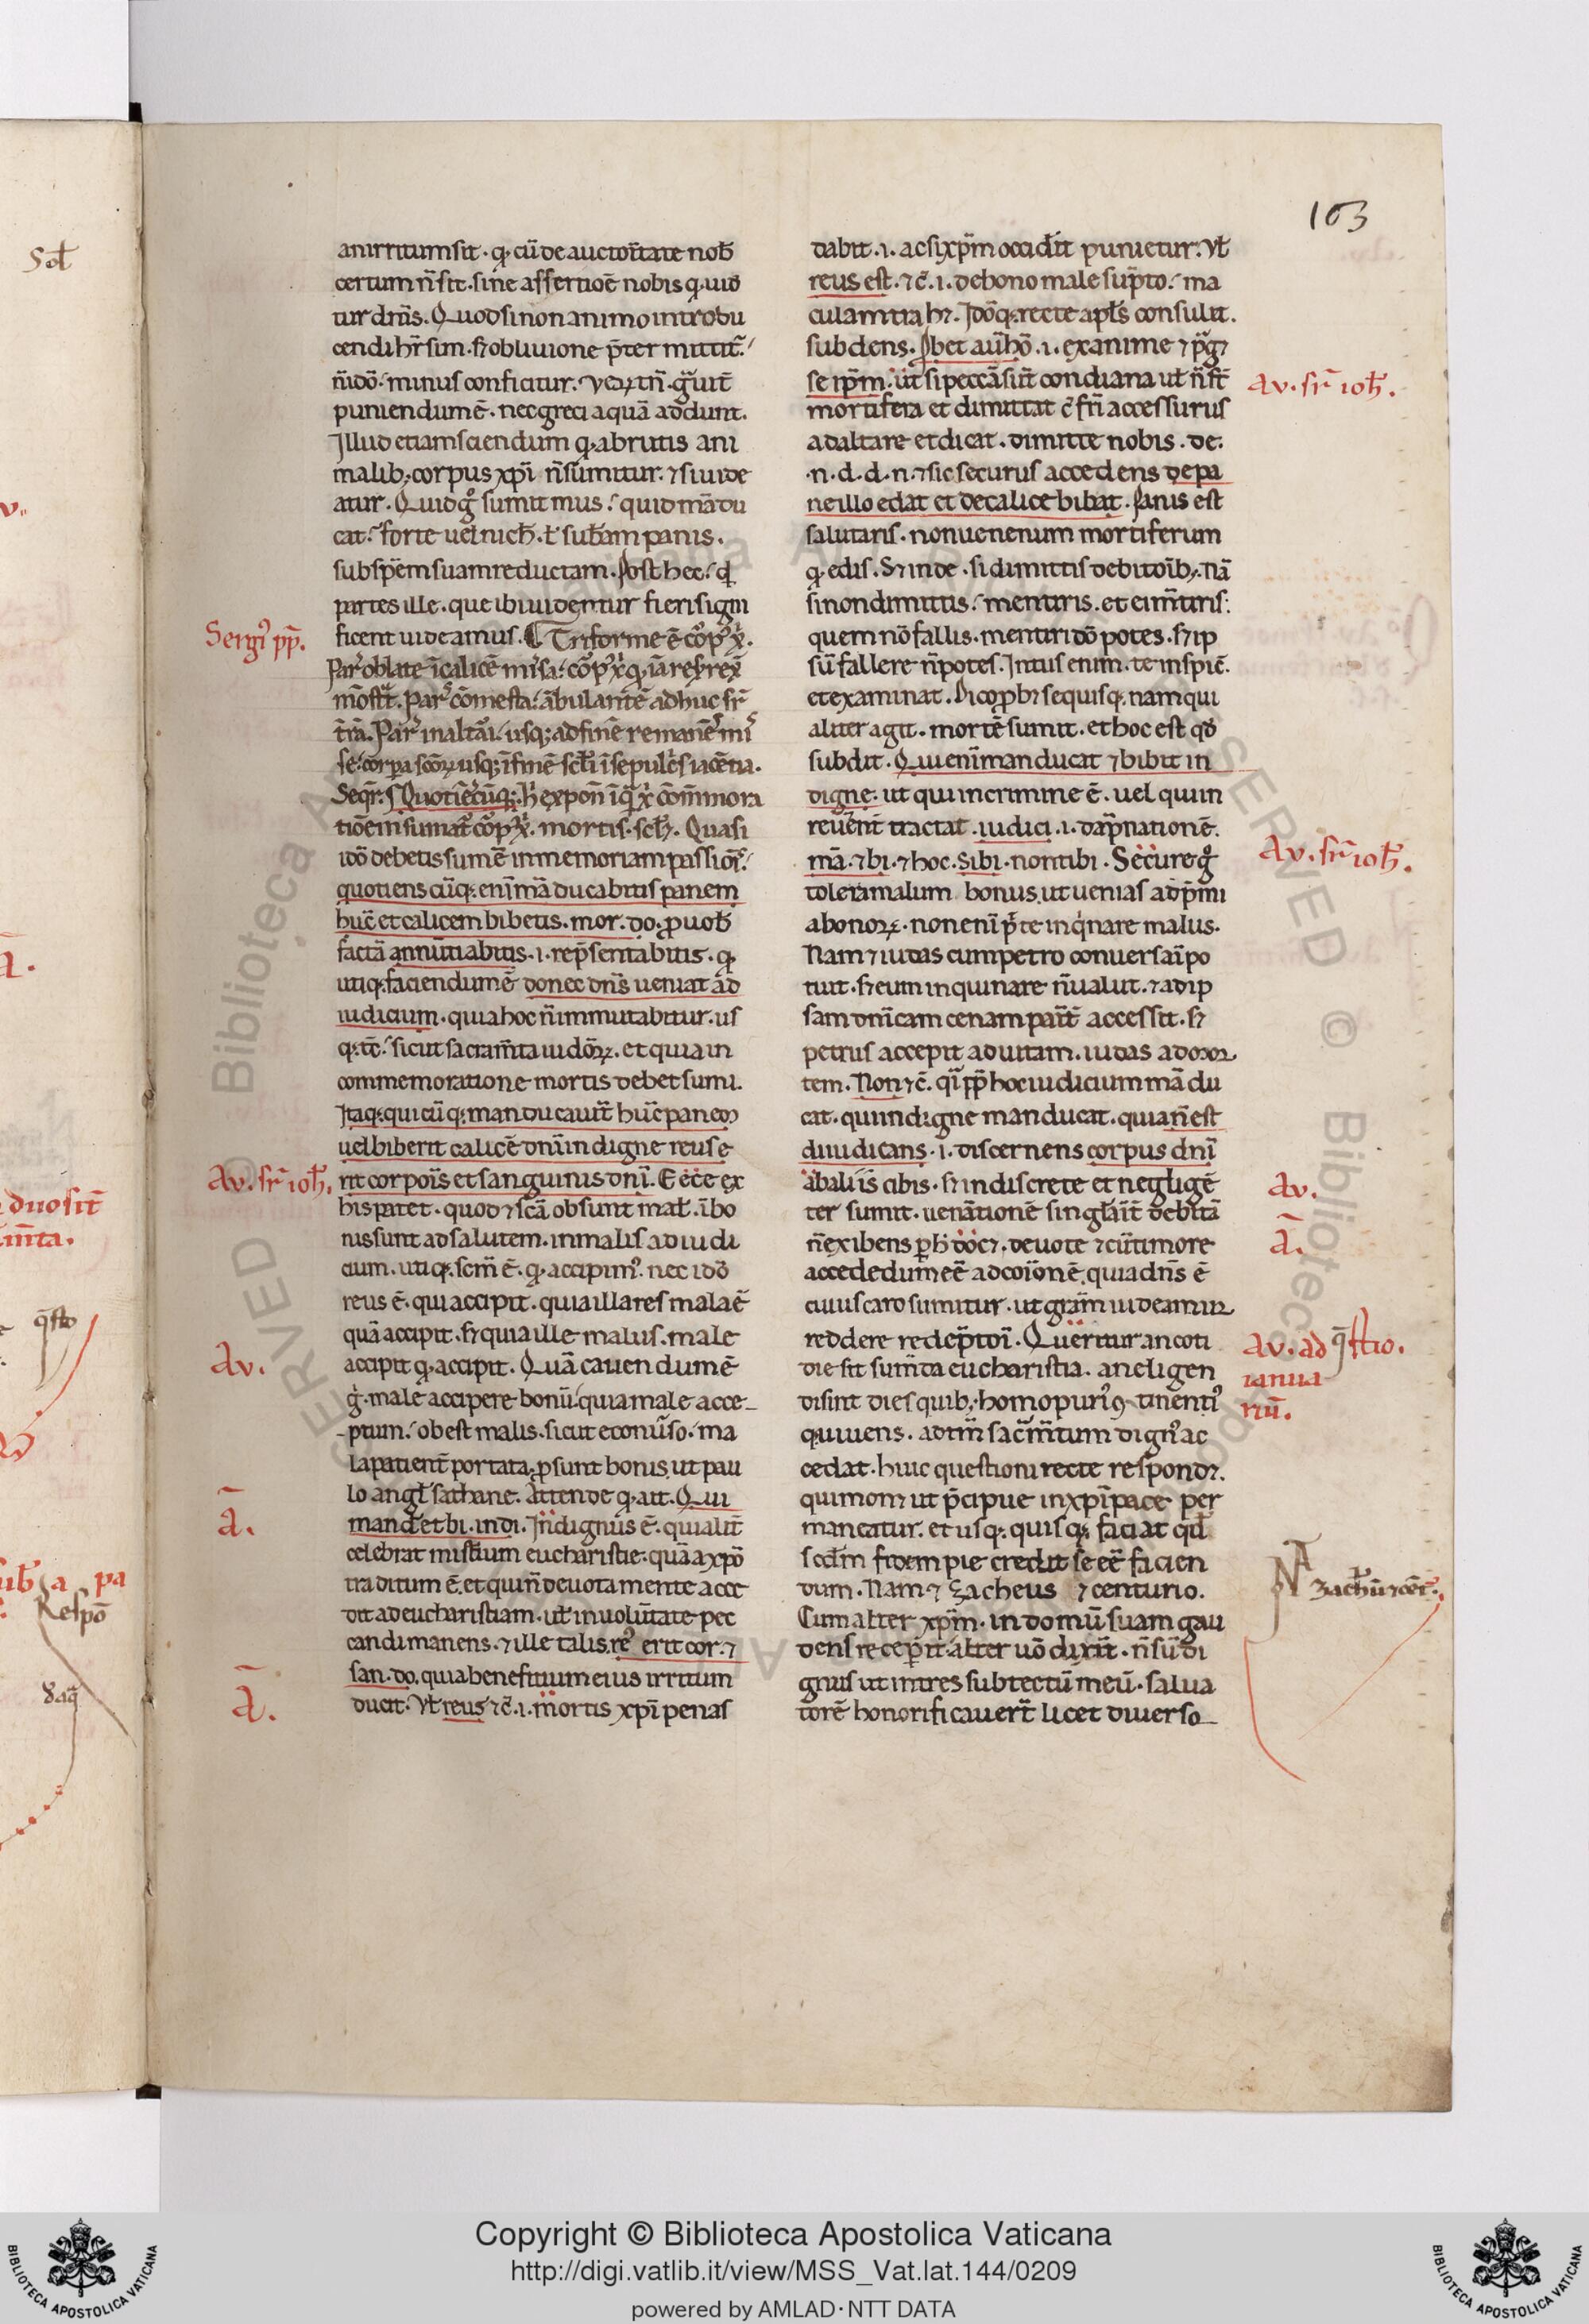 103
an irritum sit · qꝫ cū de auctoritate nob̄
certum n̄ sit · sine assertiōe nobis qꝫ uid̄
tur dn̄s · Quod si non animo introdu
cendi hr̄sim · sꝫ obliuione p̄termittit̄ ·
n̄ idō minus conficitur · uerꝫ tn̄ · g̃uit̄
puniendum ē · nec greci aquā addunt ·
Illud etiam sciendum qꝫ a brutis ani
malibꝫ corpus xp̄i n̄ sumitur · ⁊ si uide
atur · Quid g̊ sumit mus · quid mādu
cat · forte uel nich̄ · ł sub̄am panis ·
sub sp̄em suam reductam · Post hec · qd̄
partes ille · que ibi uidentur fieri signi
Sergi᾽ pp̄.
ficent uideamus · Triforme ē cōp᾽ x̄ ·
Pars oblate ī calicē missa · cōp᾽ x̄ qꝫ iā resurrex̄
mōstrat · Pars cōmesta · ābulantē adhuc sr̄
t̄rā · Pars in altari · usqꝫ ad finē remanēs mis
se · corpa scōꝝ usqꝫ ī finē sc̄li ī sepulcs iacētia ·
Seqr̄ · Quotiēscūqꝫ · h̄ expon̄ ī q̄ x̄ cōmmora
tiōem sumat̄ cōp᾽ x̄ · mortis · sclꝫ · Quasi
idō debetis sumē in memoriam passiōis ·
quotienscūqꝫ enī māducabitis panem
hūc et calicem bibetis · mor · do · ꝓ uob̄
factā annūtiabitis · i · rep̄sentabitis · qꝫ
utiqꝫ faciendum ē donec dn̄s ueniat ad
iudicium · quia hoc n̄ immutabitur · us
qꝫ tc̄ · sicut sacram̄ta iudōꝝ · et quia in
commemoratione mortis debet sumi ·
Itaqꝫ quicūqꝫ manducauit̄ hūc panem
uel biberit calicē dn̄i indigne reus e
Av · sr̄ ioh̄ ·
rit corporis et sanguinis dn̄i · Ecce ex
his patet · quod ⁊ scā obsunt mal̄ · i bo
nis sunt ad salutem · in malis ad iudi
cium · utiqꝫ scm̄ ē · qꝫ accipim᾽ · nec idō
reus ē · qui accipit · quia illa res mala ē
quā accipit · sꝫ quia ille malus · male
Av.
accipit qꝫ accipit · Quā cauendum ē
g̊ · male accipere bonū · quia male acce-
ptum · obest malis · sicut econūso · ma
la patient̄ portata · ꝓsunt bonis ut pau
lo angl̄ sathane · Attende qꝫ ait · Qui
ā.
mand̄ et bi · indi · Indignus ē · qui alit̄
celebrat misterium eucharistie · quā a xpō
traditum ē · et qui n̄ deuota mente acce
dit ad eucharistiam · ul̄ in uolūtate pec
candi manens · ⁊ ille talis re᾽ erit cor · ⁊
san · do · quia benefitium eius irritum
ā.
ducit · Vl̄ reus ⁊c̄ · i · mortis xp̄i penas
dabit · i · ac si xp̄m occidit punietur · Vl̄
reus est · ⁊c̄ · i · de bono male sūpto · ma
culam trahꝫ · Idōqꝫ recte apl̄s consulit ·
subdens · Pbet aut̄ hō · i · examine ⁊ p̄gꝫ
Av · sr̄ ioh̄ ·
se ip̄m · ut si peccā sūt cotidiana ul̄ n̄ st̄
mortifera et dimittat c̄ fri accessurus
ad altare et dicat · dimitte nobis · de ·
· n · d · d · n · ⁊ sic securus accedens de pa
ne illo edat et de calice bibat · Panis est
salutaris · non uenenum mortiferum
qꝫ edis · Sꝫ inde · si dimittis debitoribꝫ · nā
si non dimittis · mentiris · et ei m̄tiris ·
quem nō fallis · mentiri dō potes · sꝫ ip
sū fallere n̄ potes · Intus enim · te inspic̄ ·
et examinat · Dico ꝓbꝫ se quisqꝫ · nam qui
aliter agit · mortē sumit · et hoc est qd̄
subdit · Qui enī manducat ⁊ bibit in
digne · ut qui in crimine ē · uel qui in
reuēnt̄ tractat · iudici · i · dāpnationē ·
Av · sr̄ ioh̄ ·
mā · ⁊ bi · ⁊ hoc · sibi · non tibi · Secure g̊
tolera malum bonus · ut uenias ad p̄mi
a bonoꝝ · non enī p̄t te inqnare malus ·
Nam ⁊ iudas cum petro conuersari po
tuit · sꝫ eum inquinare n̄ ualuit · ⁊ ad ip
sam dnīcam cenam parit̄ accessit · sꝫ
petrus accepit ad uitam · iudas ad mor
tem · Non ⁊c̄ · q̄i pp̄ hoc iudicium mādu
cat · qui indigne manducat · quia n̄ est
diiudicans · i · discernens corpus dn̄i
Av.
ab aliis cibis · sꝫ indiscrete et negligē
ter sumit · uenātionē singlarit̄ debitā
ā.
n̄ exibens · p̄ h̄ docꝫ · deuote ⁊ cū timore
accededum eē ad coiōnē quia dn̄s ē
cuius caro sumitur · ut grām uideamur
Av · ad q̄stio ·
ianua
riū ·
reddere redēptori · Queritur an coti
die sit sumēda eucharistia · an eligen
di sint dies quibꝫ homo puri᾽ 9tinenti᾽
qꝫ uiuens · ad tm̄ sac̄m̄tum digni᾽ ac
cedat · huic questioni recte respondꝫ ·
qui monꝫ ut p̄cipue in xp̄i pace per
maneatur · et usqꝫ quisqꝫ faciat qd̄
scd̄m fidem pie credit se eē facien
dum · Nam ⁊ zacheus ⁊ centurio ·
NA zacheū ⁊ cēt̄ ·
Cum alter xp̄m · in domū suam gau
dens recepit · alter uō dixit · n̄ sū di
gnus ut intres sub tectū meū · salua
torē honorificauert̄ licet diuerso
Copyright © Biblioteca Apostolica Vaticana
http://digi.vatlib.it/view/MSS_Vat.lat.144/0209
powered by AMLAD·NTT DATA
BIBLIOTECA APOSTOLICA VATICANA
BIBLIOTECA APOSTOLICA VATICANA